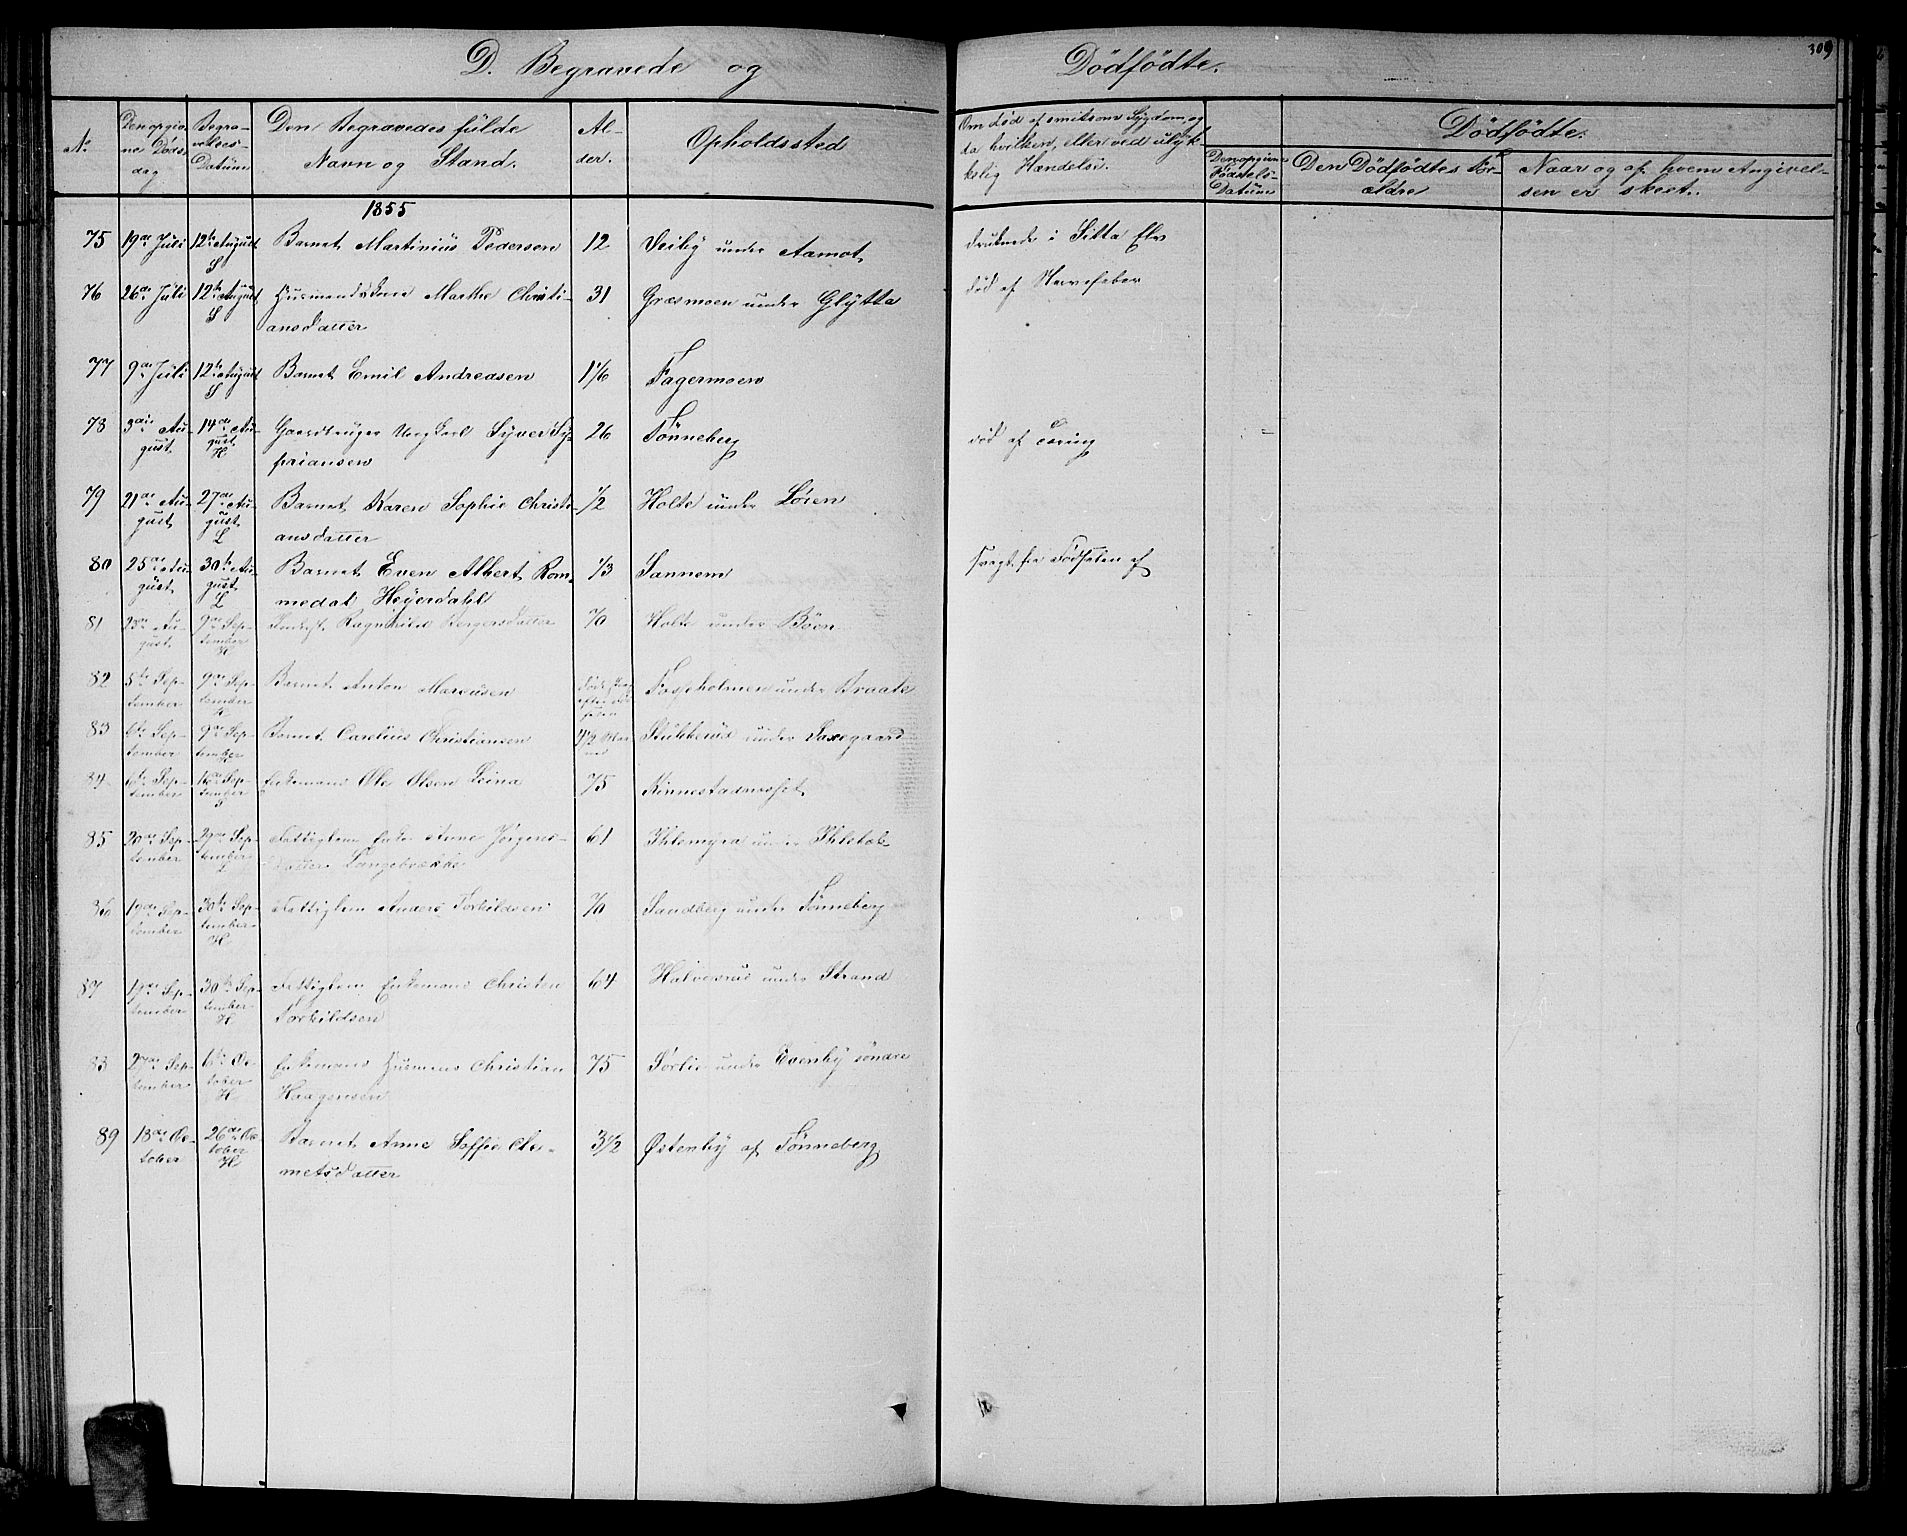 D. Begravede og Dödfödte.
309
No
Den opgivne Døds-dag
Begravelses-Datum
Den Begravedes fulde Navn og Stand.
Alder.
Opholdssted
Om død af smitsom Sygdom, og da hvilken, eller ved ulykkelig Hændelse.
Dödfödte.
Den opgivne Fødsels-Datum
Den Dödfödtes For-ældre
Naar og af hvem Angivel-sen er skeet.
1855
75 19de Juli 12te August S Barnet Martinius Pedersen 12 Veiby under Aamot druknede i Sitta Elv
76 26de Juli 12te August S Huusmandskone Marthe Christi-ansdatter 31 Græsmoen under Glÿtta død af Nervefeber
77 9de Juli 12te August S Barnet Emil Andreasen 1 1/6 Fagermoen
78 3die Au-gust 14de Au-gust H Gaardbruger Ungkarl Syver Sy-priansen 26 Tönneberg død af Tæring
79 21de Au-gust 27de Au-gust L Barnet Karen Sophie Christi-ansdatter 1/2 Holte under Lören
80 25de Au-gust 30te Au-gust L Barnet Even Albert Rom-medal Heyerdahl 1/3 Sannem svag fra Fødselen af
81 25de Au-gust 9de Sep-tember H Ragnhild Bergersdatter 70 Holte under Böen
82 5te Sep-tember 9de Sep-tember H Barnet Anton Marcusen Fosseholmen under Braate
83 6te Sep-tember 9de Sep-tember H Barnet Carelius Christiansen 4 1/2 Stubberud under Saxegaard
84 6te Sep-tember 16de Sep-tember S Enkemand Ole Olsen Leina 75 Kinnestadvasset
85 20de Sep-tember 29de Sep-tember L Fattiglem Enke Anne Jörgens-datter Langebrække 61 Ihlemyra under Ihlebæk
86 19de Sep-tember 30te Sep-tember H Fattiglem Anders Torkildsen 70 Sandberg under Tönneberg
87 19de Sep-tember 30te Sep-tember H Fattiglem Enkemand Christen Torkildsen 64 Halvorsrud under Strand
88 27de Sep-tember 6te Oc-tober H Enkemand Huusmand Christian Haagensen 75 Sorlie under Evenby söndre
89 18de Oc-tober 26de Oc-tober H Barnet Anne Soffie Cle-metsdatter 3 1/2 Østenby af Tönneberg